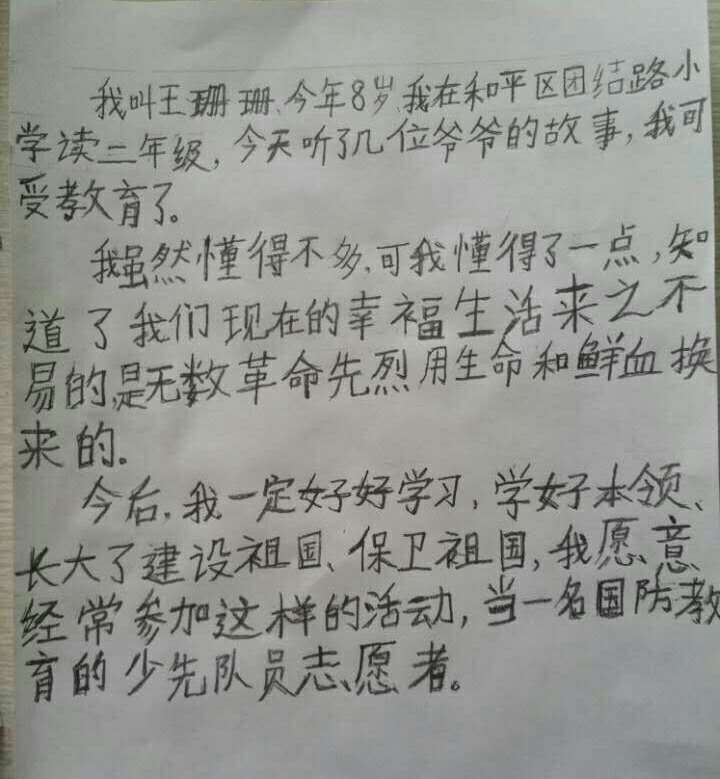 我叫王珊珊、今年8岁、我在和平区团结路小
学读二年级，今天听了几位爷爷的故事，我可
受教育了。
我虽然懂得不多、可我懂得了一点，知
道了我们现在的幸福生活来之不
易的，是无数革命先烈用生命和鲜血换
来的.
今后，我一定好好学习，学好本领、
长大了建设祖国、保卫祖国，我愿意
经常参加这样的活动，当一名国防教
育的少先队员志愿者。